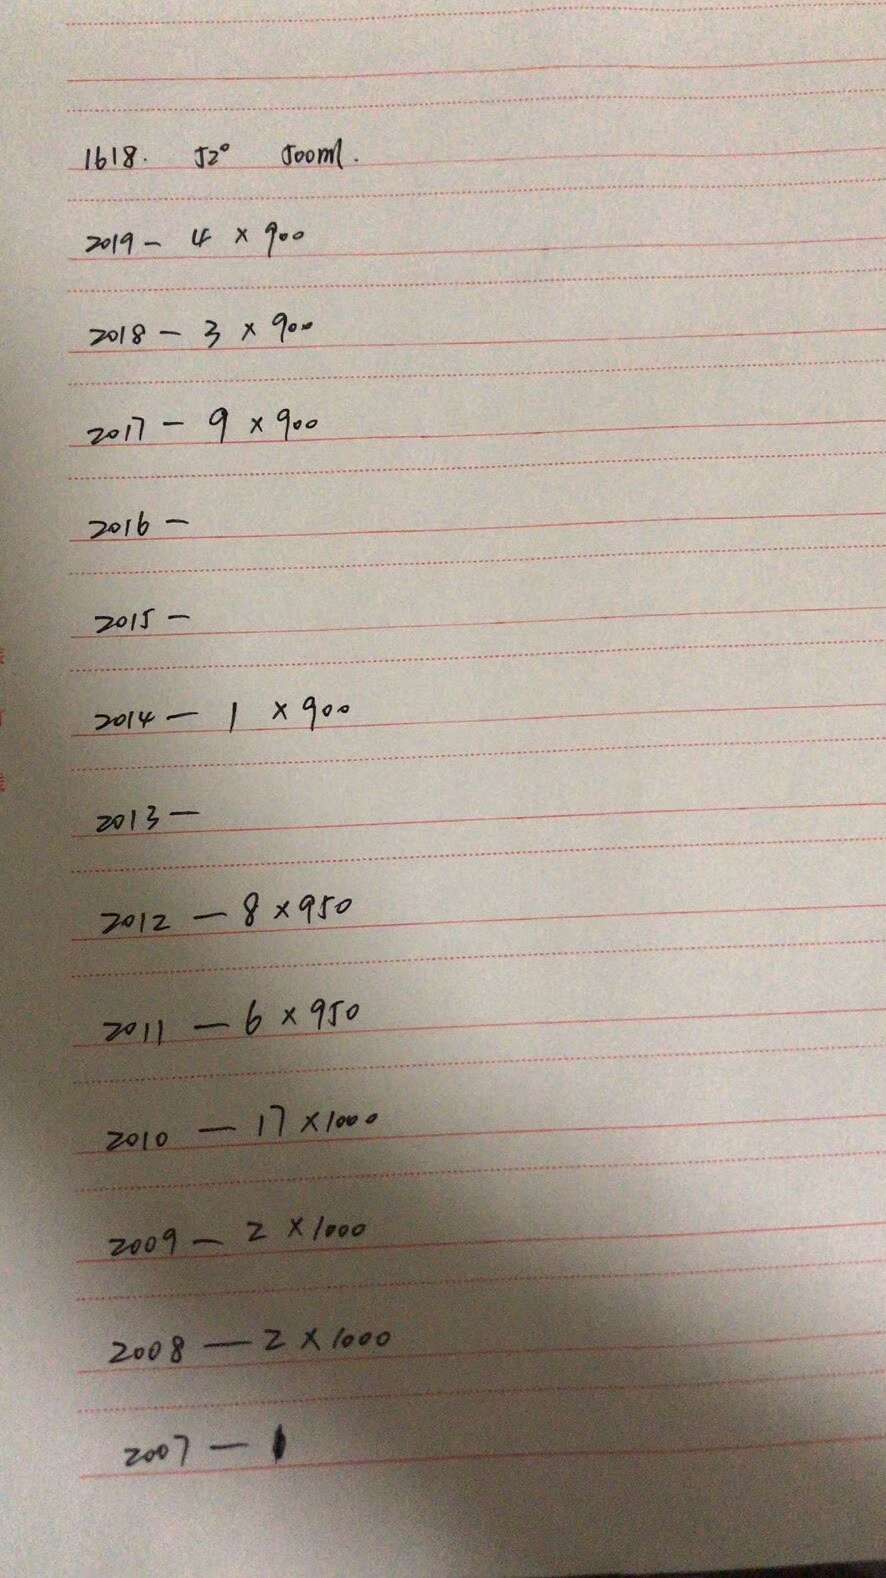 1618. 52° 500ml.
2019 - 4 × 900
2018 - 3 × 900
2017 - 9 × 900
2016 -
2015 -
2014 - 1 × 900
2013 -
2012 - 8 × 950
2011 - 6 × 950
2010 - 17 × 1000
2009 - 2 × 1000
2008 - 2 × 1000
2007 - 1